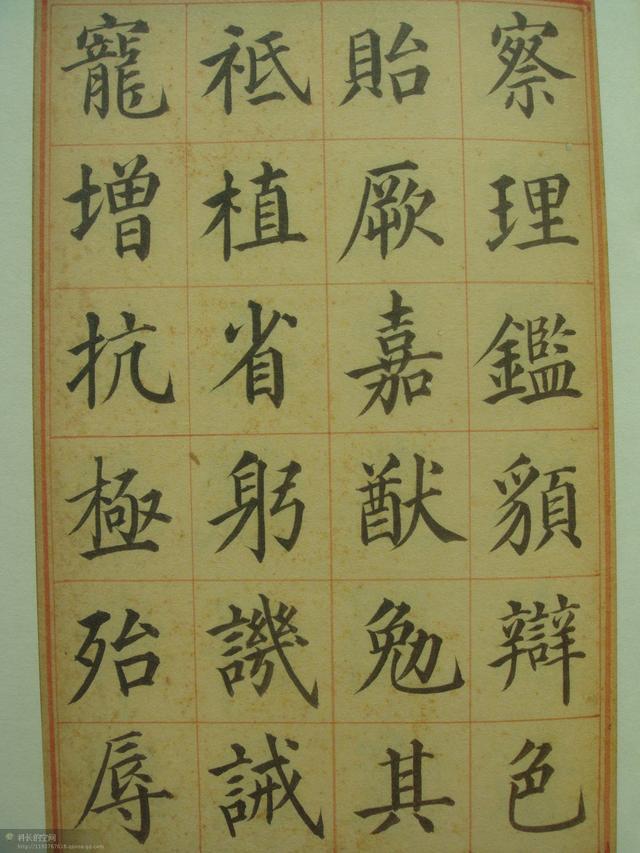 察理鑑貌辯色
貽厥嘉猷勉其
祗植省躬譏誡
寵增抗極殆辱
科长的空间